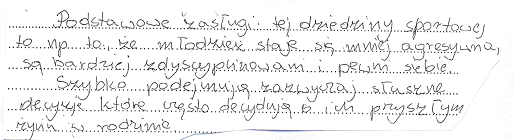 Podstawowe zasługi tej dziedziny sportowej
to np to, że młodzież staje się mniej agresywna,
są bardziej zdyscyplinowani i pewni siebie.
Szybko podejmują zazwyczaj słuszne
decyzje które często decydują o ich przyszłym
życiu w rodzinie